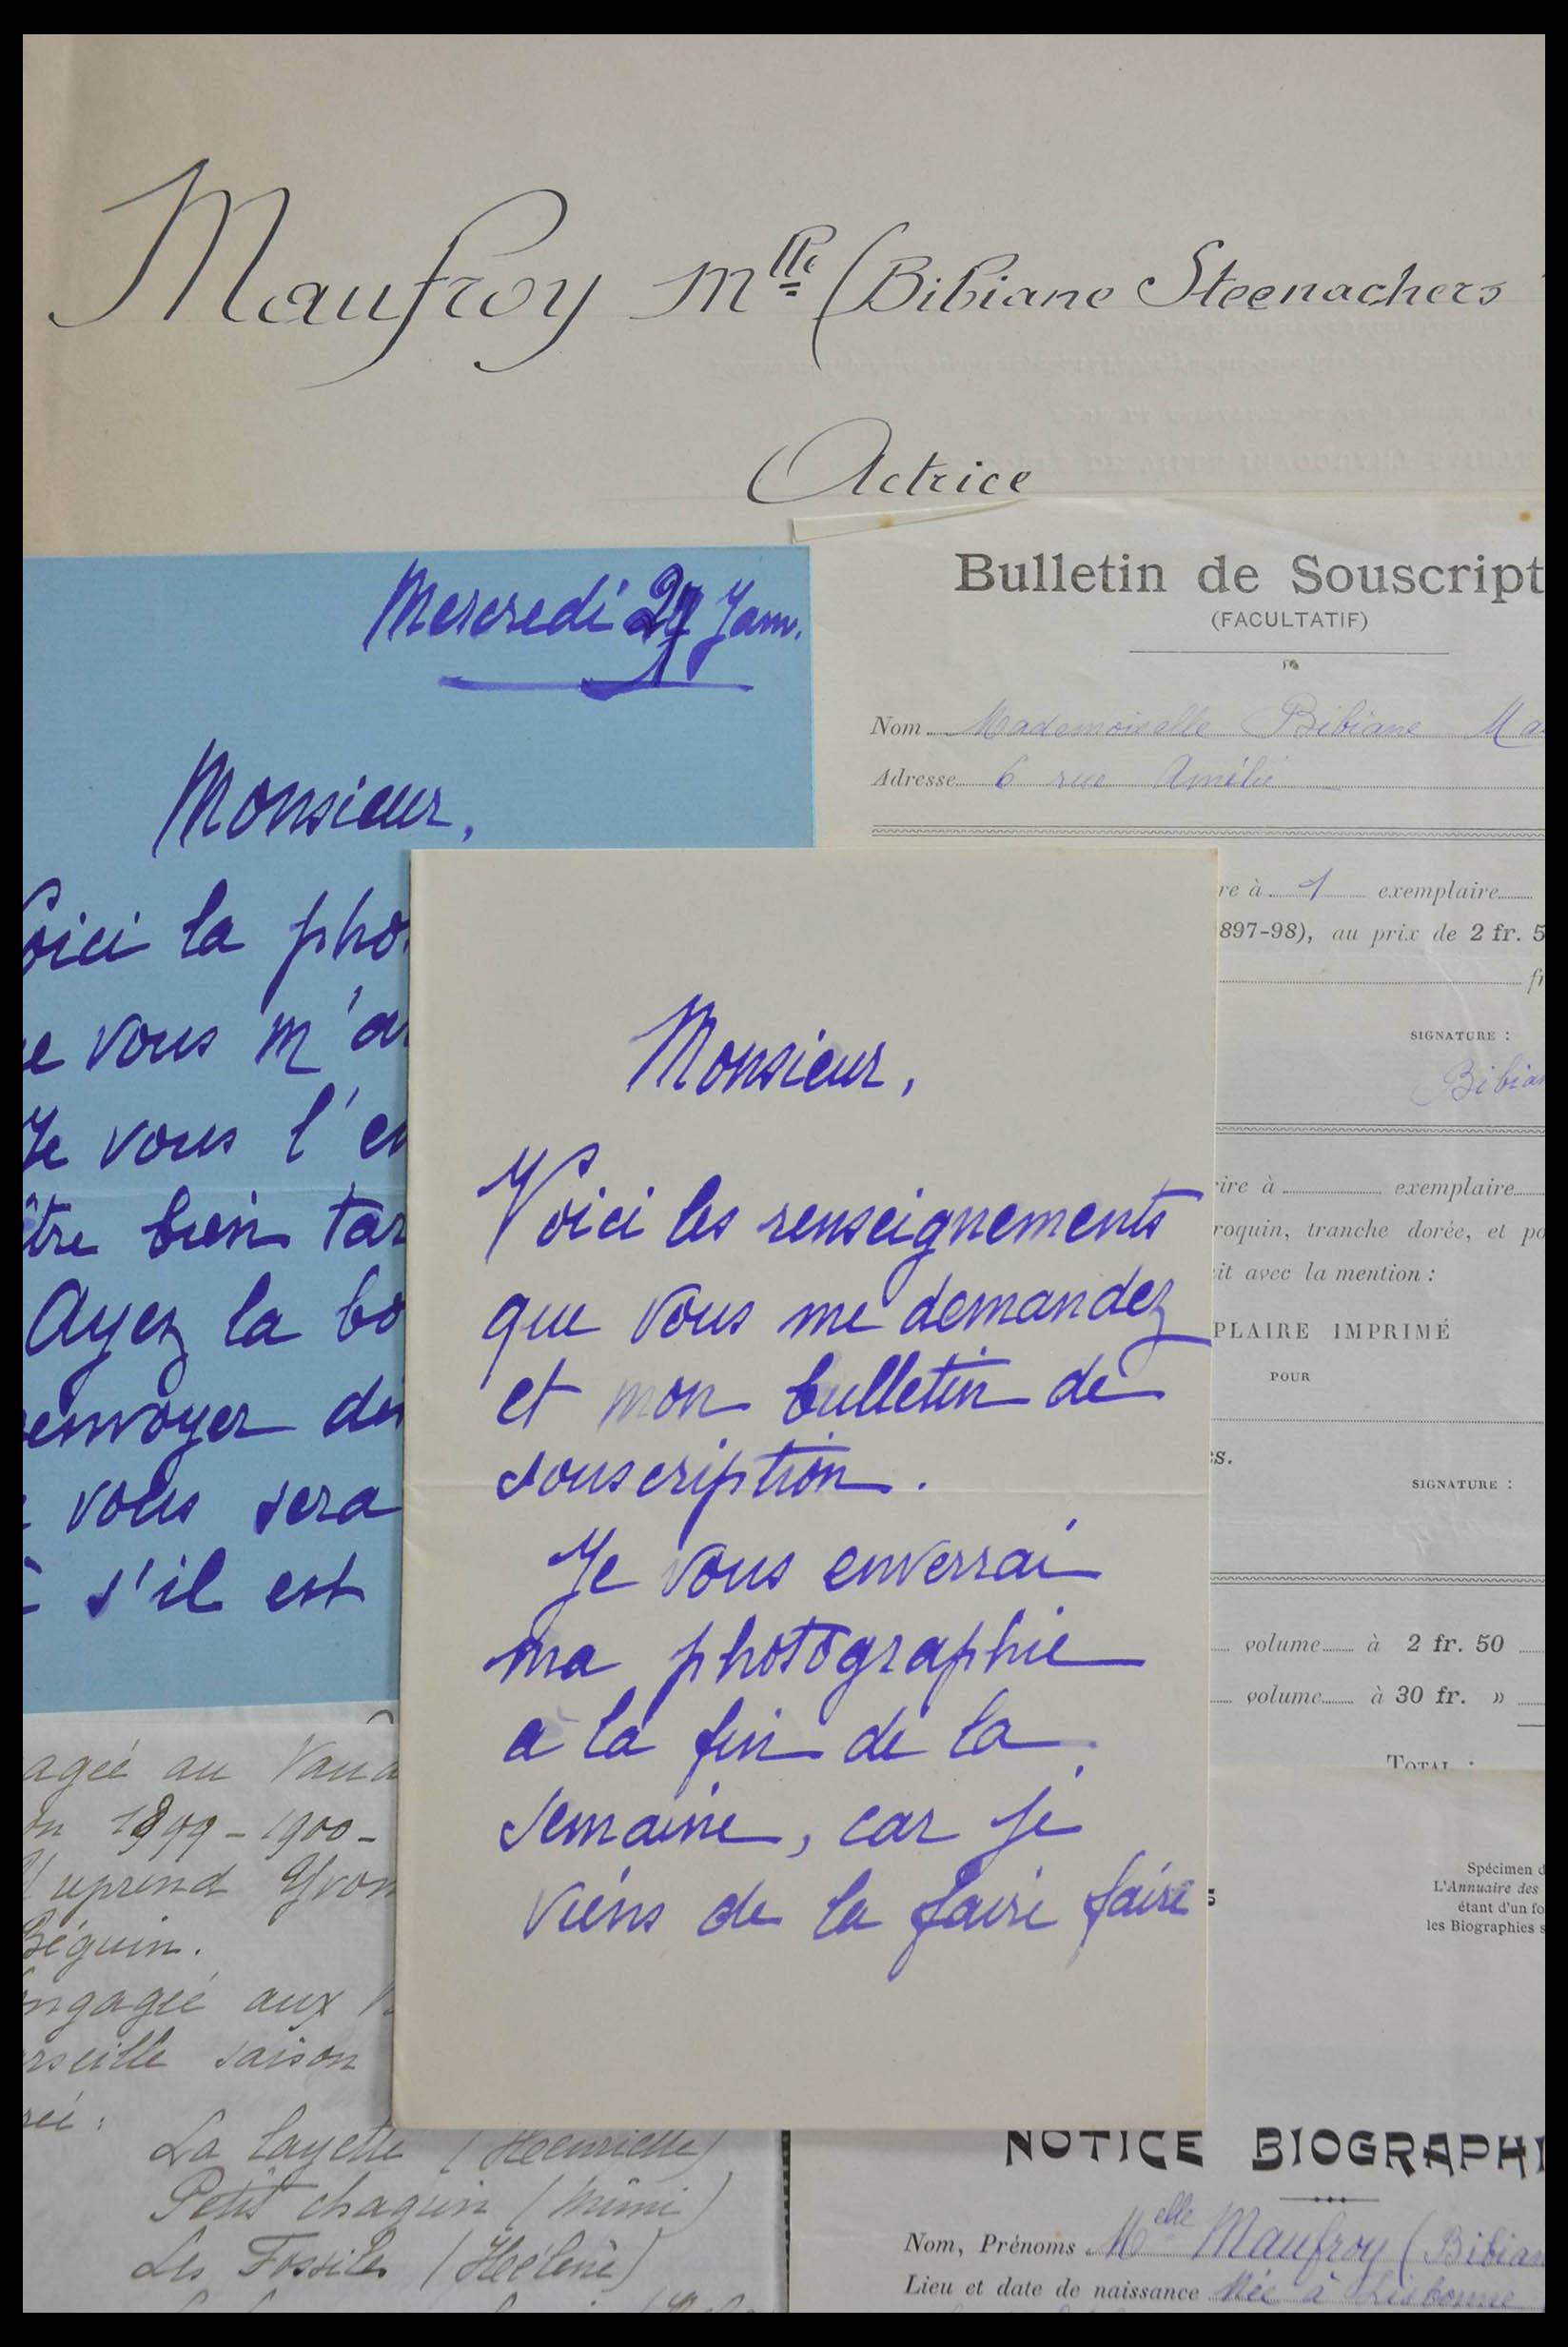 Maufroy Mlle (Bibiane Steenachers
Actrice
Mercredi Janv.
Monsieur,
Voici la pho
e vous m'a
Je vous l'en
être bien tar
Ayez la bo
envoyer
vous sera
s'il est
Bulletin de Souscript
(FACULTATIF)
Nom Mademoiselle Bibiane Ma
Adresse 6 rue Amélie
re à 1 exemplaire
897-98), au prix de 2 fr. 5
fr
SIGNATURE :
Bibian
rire à exemplaire
roquin, tranche dorée, et po
it avec la mention :
PLAIRE IMPRIMÉ
POUR
s.
SIGNATURE :
volume à 2 fr. 50
volume à 30 fr. »
TOTAL :
Monsieur,
Voici les renseignements
que vous me demandez
et mon bulletin de
souscription.
Je vous enverrai
ma photographie
a la fin de la
semaine, car je
viens de la faire faire
agée au Vaud
on 1899-1900-
reprend Yvon
Béguin.
engagée aux
rseille saison
réé :
La layette (Henriette)
Petit chagrin (Mimi)
Les Fossiles (Hélène)
Spécimen d
L'Annuaire des
étant d'un fo
les Biographies s
NOTICE BIOGRAPHI
Nom, Prénoms Melle Maufroy (Bibian
Lieu et date de naissance Née à Lisbonne